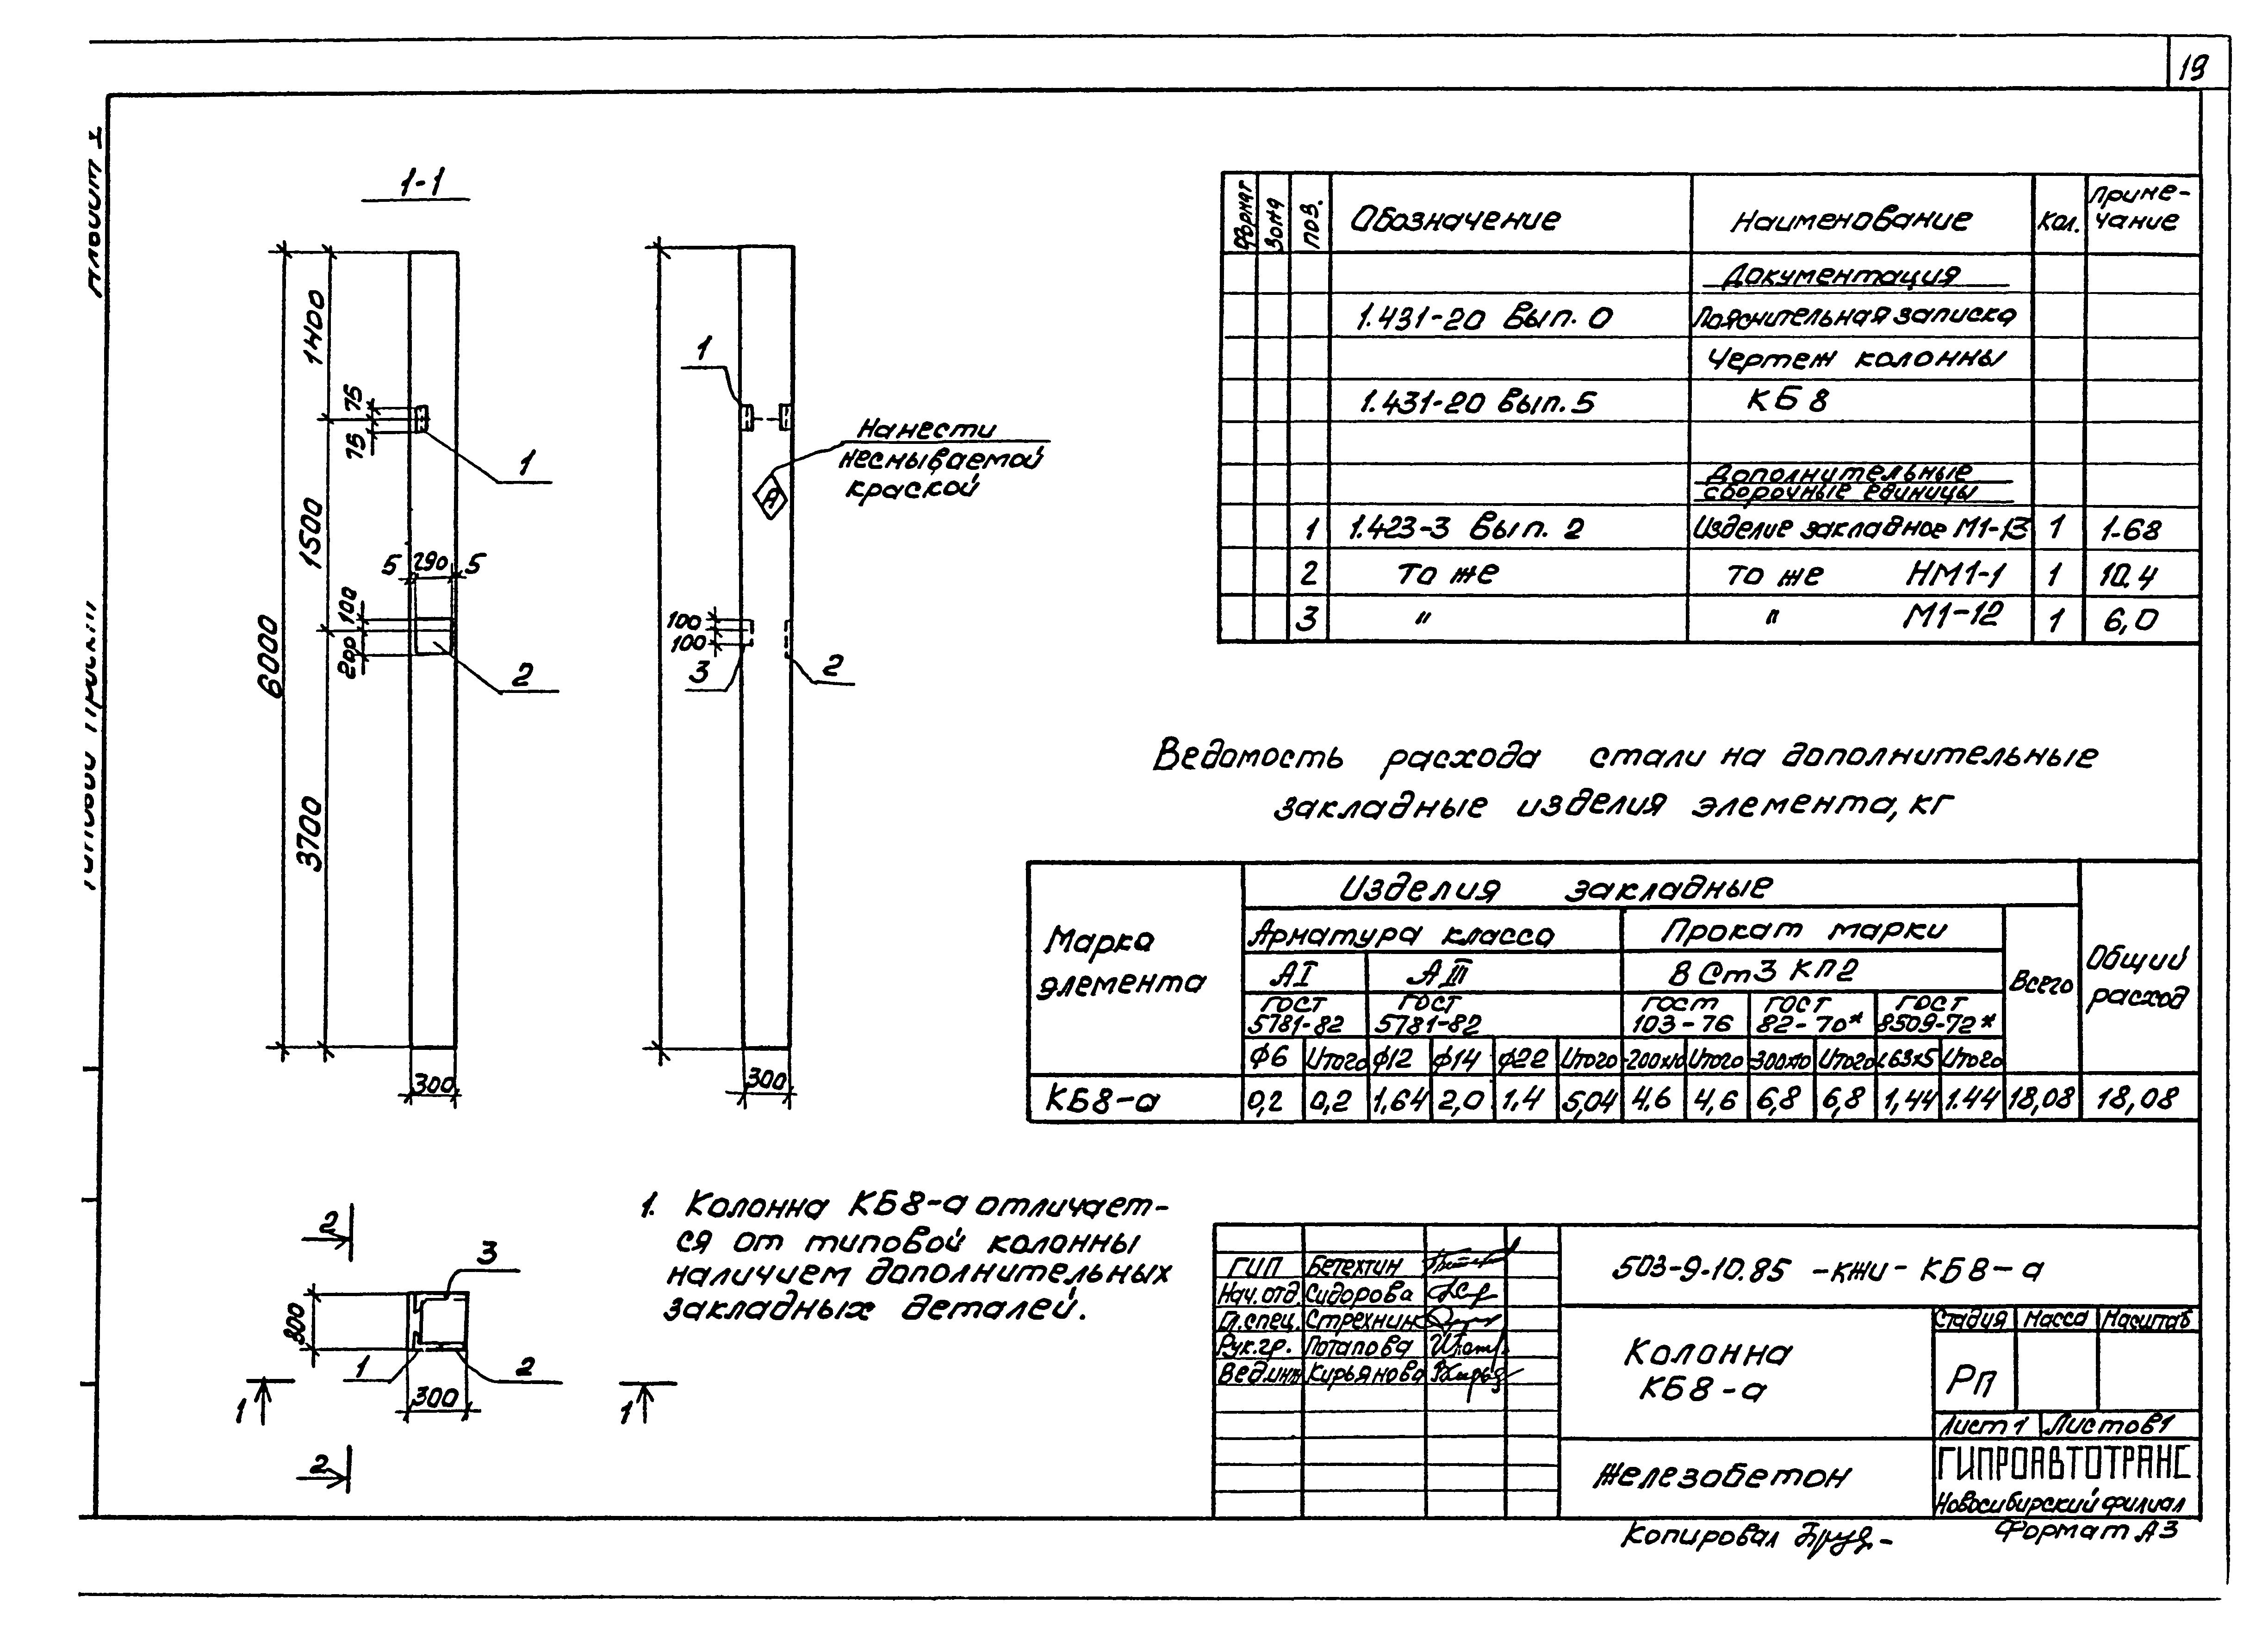 19
Альбом I
Типовой проект
1-1
1400
75
75
1
1500
5 290 5
100
200
2
6000
3700
300
1
Нанести
несмываемой
краской
А
100
100
3
2
300
Формат Зона Поз. Обозначение Наименование Кол. Приме-
чание
Документация
1.431-20 Вып. 0 Пояснительная записка
Чертеж колонны
1.431-20 Вып. 5 КБ 8
Дополнительные
сборочные единицы
1 1.423-3 Вып. 2 Изделие закладное М1-13 1 1.68
2 То же То же НМ1-1 1 10.4
3 " " М1-12 1 6,0
Ведомость расхода стали на дополнительные
закладные изделия элемента, кг
Марка
элемента
Изделия закладные
Общий
расход
Арматура класса Прокат марки Всего
АI АIII ВСт3 КП2
ГОСТ
5781-82
ГОСТ
5781-82
ГОСТ
103-76
ГОСТ
82-70*
ГОСТ
8509-72*
ф6 Итого ф12 ф14 ф22 Итого -200х10 Итого -300х10 Итого L63х5 Итого
КБ8-а 0,2 0,2 1,64 2,0 1,4 5,04 4.6 4,6 6,8 6,8 1,44 1.44 18,08 18,08
2
3
300
1
2
300
1
1
2
1. Колонна КБ8-а отличает-
ся от типовой колонны
наличием дополнительных
закладных деталей.
ГИП Бетехтин
Нач.отд. Сидорова
Гл.спец. Стрехнин
Рук.гр. Потапова
Вед.инж Кирьянова
503-9-10.85 -КЖИ- КБ8-а
Колонна
КБ8-а
Стадия Масса Масштаб
РП
Лист 1 Листов 1
Железобетон
ГИПРОАВТОТРАНС
Новосибирский филиал
Копировал
Формат А3